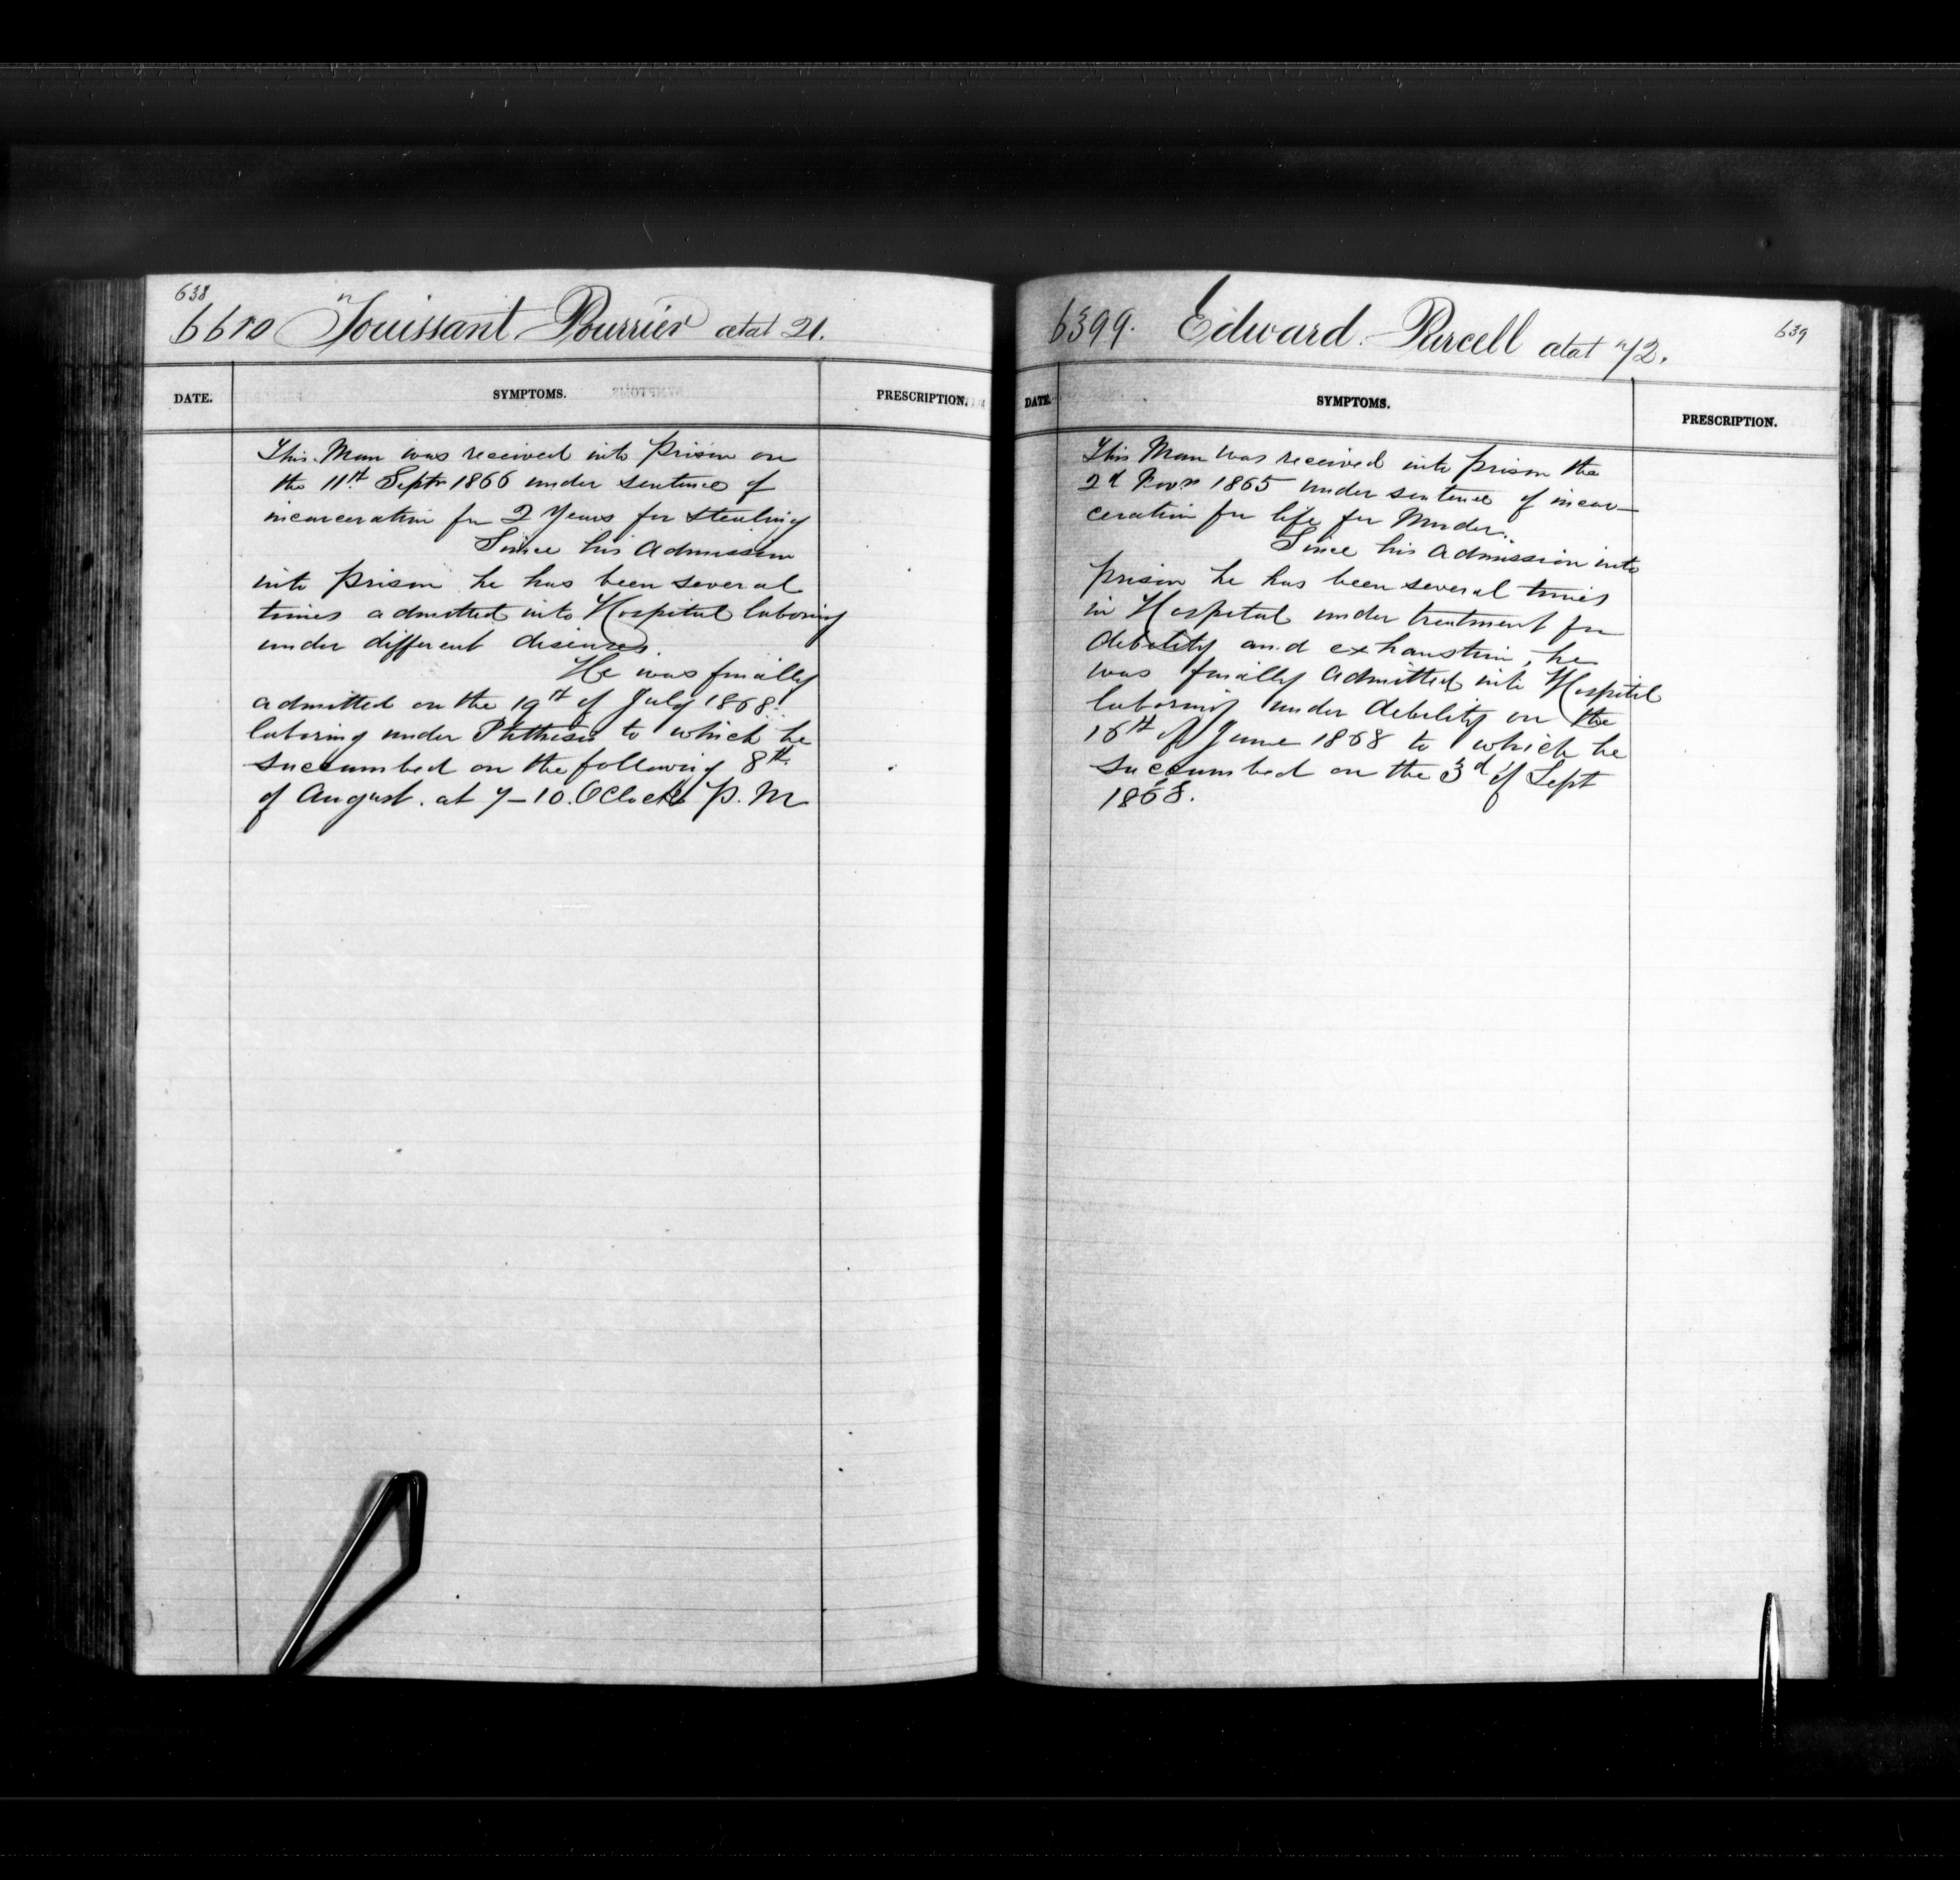 638
6610 Touissant Pourrier ætat 21.
DATE. SYMPTOMS. PRESCRIPTION.
This Man was received into Prison on
the 11th Septr 1866 under sentence of
incarceration for 2 Years for stealing
Since his Admission
into prison he has been several
times admitted into Hospital laboring
under different diseases.
He was finally
admitted on the 19th of July 1868.
laboring under Phthisis to which he
succumbed on the following 8th
of August. at 7-10. OClock P. M
639
6399. Edward Purcell ætat 72.
DATE. SYMPTOMS. PRESCRIPTION.
This Man was received into prison the
2d Novr 1865 under sentence of incar-
ceration for life for Murder.
Since his Admission into
prison he has been several times
in Hospital under treatment for
debility and exhaustion, he
was finally Admitted into Hospital
laboring under debility on the
16th of June 1868 to which he
succumbed on the 3d of Sept
1868.